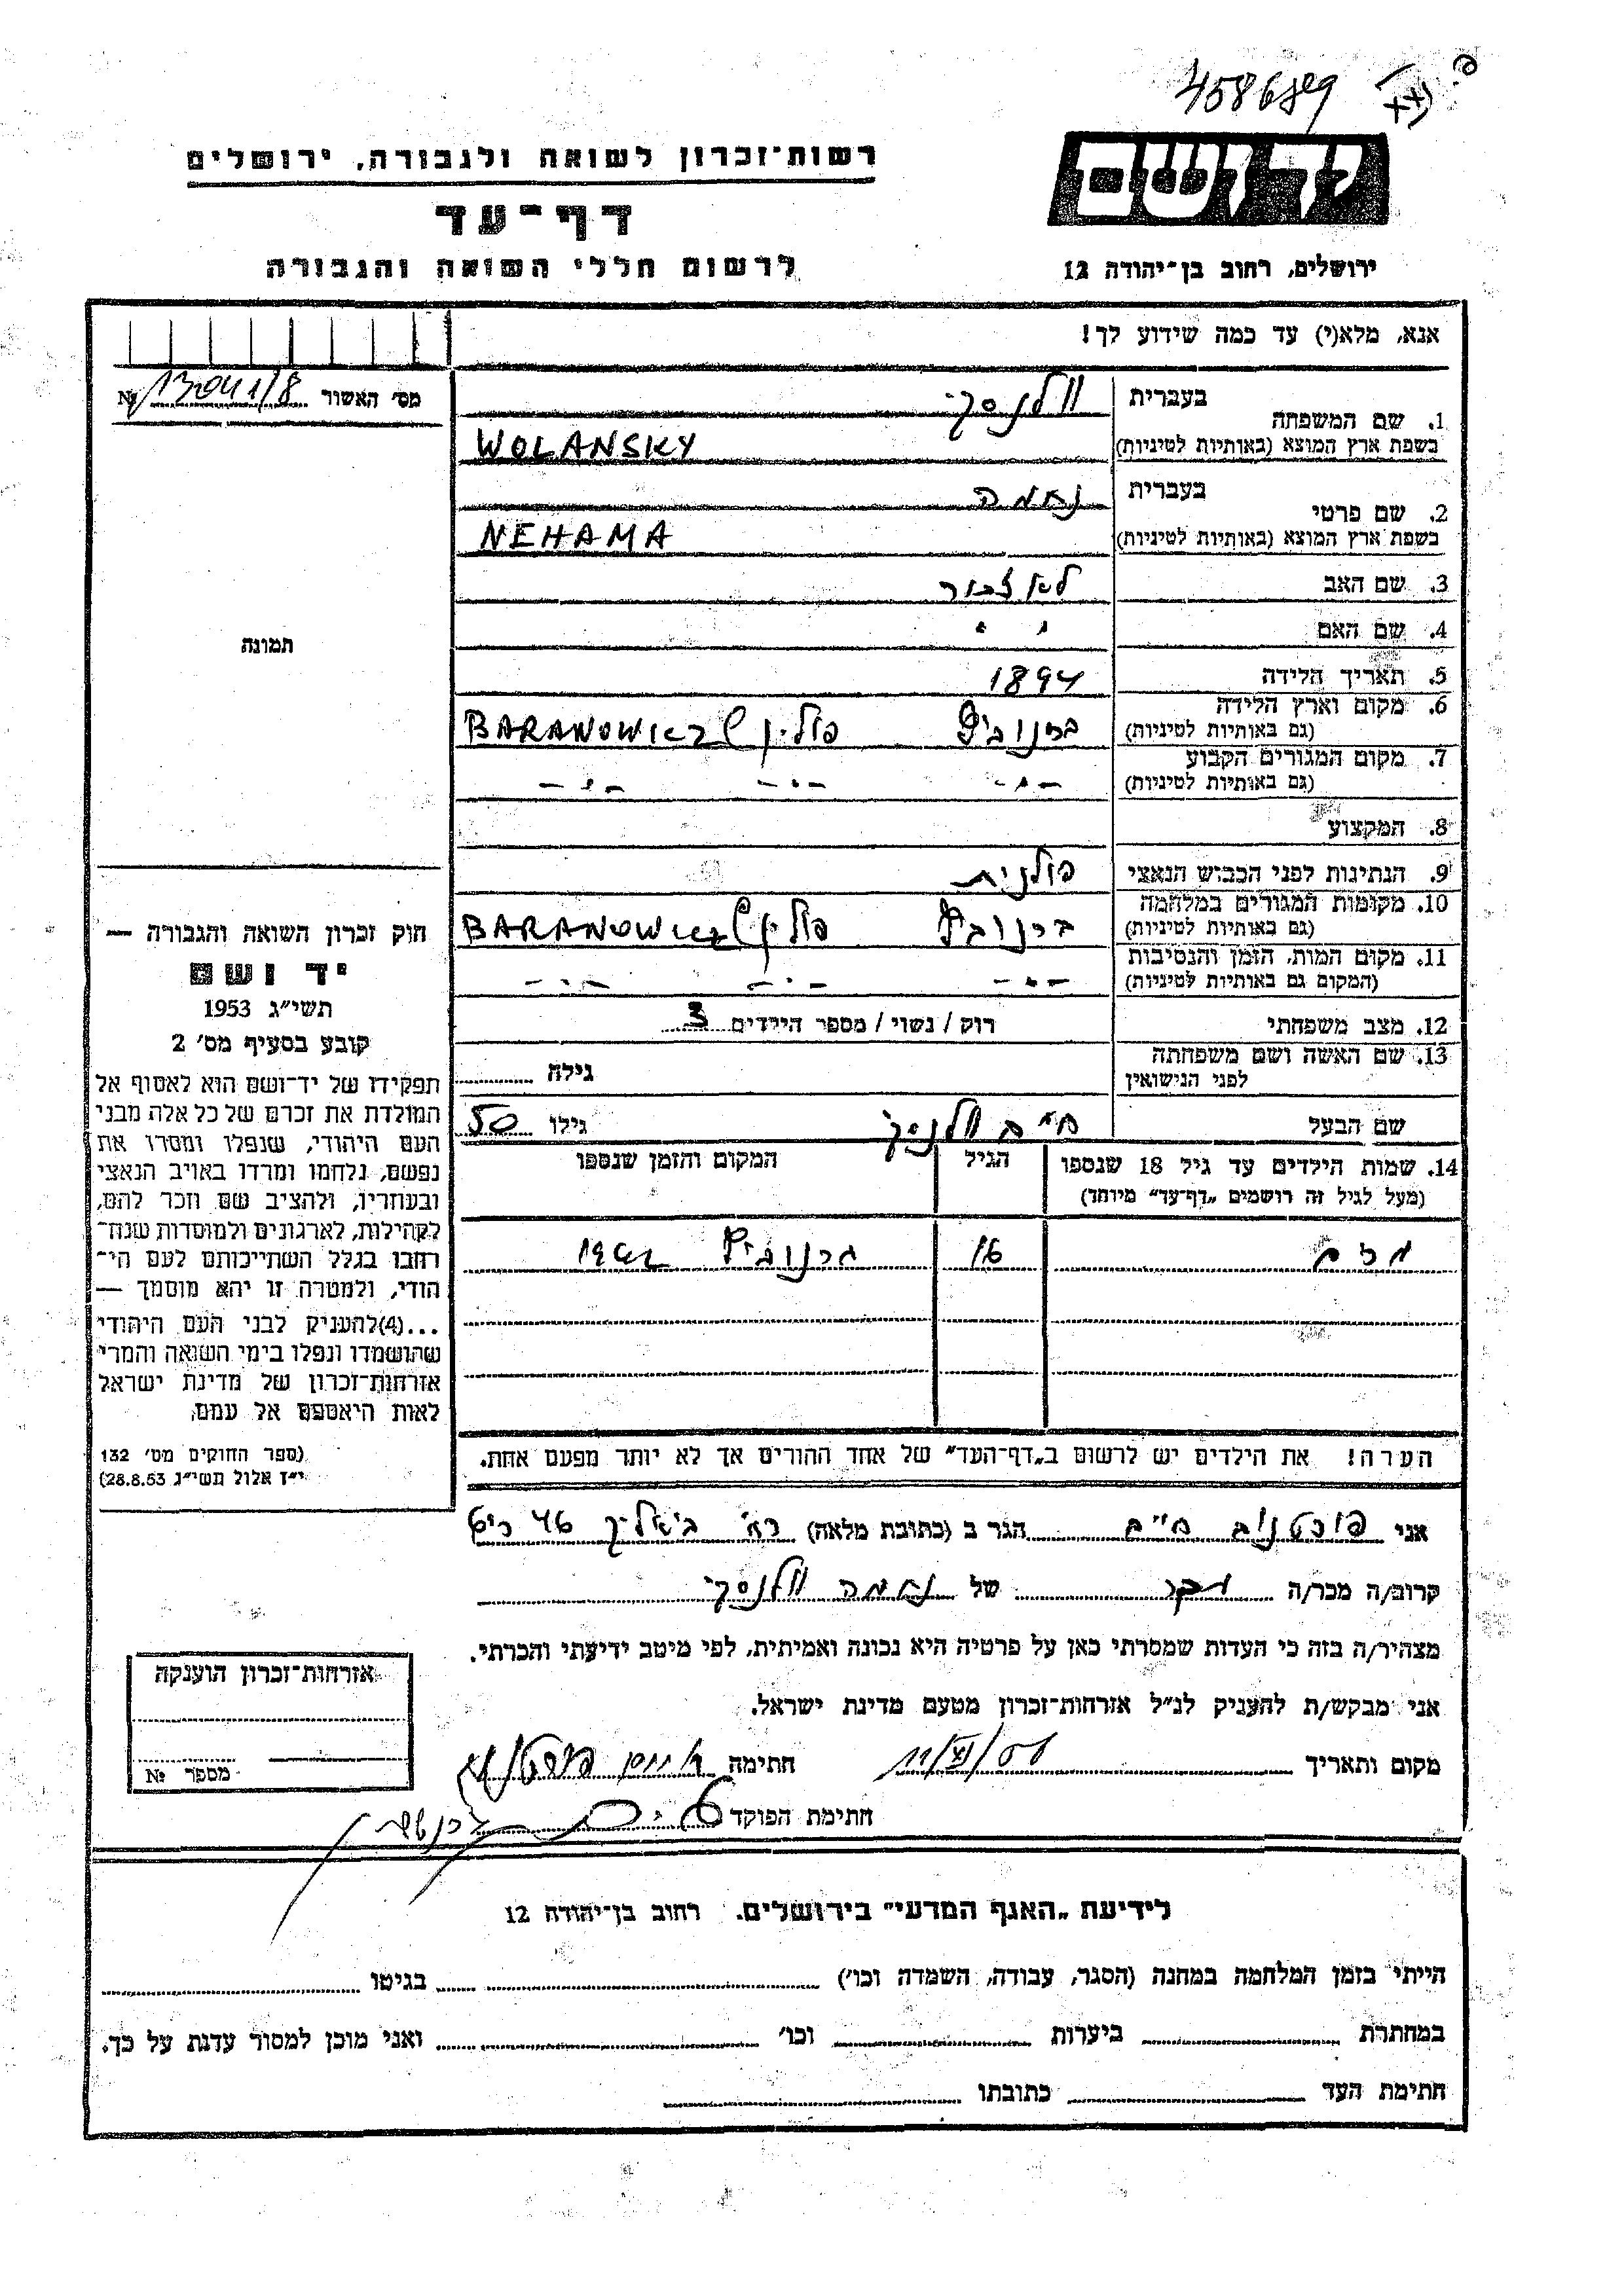 4586789
יד ושם
רשות־זכרון לשואה ולגבורה, ירושלים
דף־עד
לרשום חללי השואה והגבורה
ירושלים, רחוב בן־יהודה 12
אנא, מלא(י) עד כמה שידוע לך!
מס׳ האשור 13041/8 №
1. שם המשפחה בעברית וולנסקי
בשפת ארץ המוצא (באותיות לטיניות) WOLANSKY
2. שם פרטי בעברית נחמה
בשפת ארץ המוצא (באותיות לטיניות) NEHAMA
3. שם האב לא זכור
4. שם האם " "
5. תאריך הלידה 1894
6. מקום וארץ הלידה
(גם באותיות לטיניות) ברנוביץ פולין BARANOWICZE
7. מקום המגורים הקבוע
(גם באותיות לטיניות) – " – – " – – " –
8. המקצוע
9. הנתינות לפני הכבוש הנאצי פולנית
10. מקומות המגורים במלחמה
(גם באותיות לטיניות) ברנוביץ פולין BARANOWICZE
11. מקום המות, הזמן והנסיבות
(המקום גם באותיות לטיניות) – " – – " – – " –
12. מצב משפחתי רוק / נשוי / מספר הילדים 3
13. שם האשה ושם משפחתה
לפני הנישואין גילה
שם הבעל חיים וולנסקי גילו 50
14. שמות הילדים עד גיל 18 שנספו
(מעל לגיל זה רושמים „דף־עד״ מיוחד) הגיל המקום והזמן שנספו
16 ברנוביץ 1942
הערה! את הילדים יש לרשום ב„דף־העד״ של אחד ההורים אך לא יותר מפעם אחת.
תמונה
חוק זכרון השואה והגבורה —
יד ושם
תשי״ג 1953
קובע בסעיף מס׳ 2
תפקידו של יד־ושם הוא לאסוף אל
המולדת את זכרם של כל אלה מבני
העם היהודי, שנפלו ומסרו את
נפשם, נלחמו ומרדו באויב הנאצי
ובעוזריו, ולהציב שם וזכר להם,
לקהילות, לארגונים ולמוסדות שנח־
רבו בגלל השתייכותם לעם הי־
הודי, ולמטרה זו יהא מוסמך —
...(4)להעניק לבני העם היהודי
שהושמדו ונפלו בימי השואה והמרי
אזרחות־זכרון של מדינת ישראל
לאות היאספם אל עמם.
(ספר החוקים מס׳ 132
י״ז אלול תשי״ג 28.8.53)
אני פורטנוב חיים הגר ב (כתובת מלאה) רח׳ ביאליק 46
קרוב/ה מכר/ה מכר של נחמה וולנסקי
מצהיר/ה בזה כי העדות שמסרתי כאן על פרטיה היא נכונה ואמיתית, לפי מיטב ידיעתי והכרתי.
אני מבקש/ת להעניק לנ״ל אזרחות־זכרון מטעם מדינת ישראל.
מקום ותאריך חתימה
חתימת הפוקד
אזרחות־זכרון הוענקה
מספר №
לידיעת „האגף המדעי״ בירושלים. רחוב בן־יהודה 12
הייתי בזמן המלחמה במחנה (הסגר, עבודה, השמדה וכו׳) בגיטו
במחתרת ביערות וכו׳ ואני מוכן למסור עדות על כך.
חתימת העד כתובתו